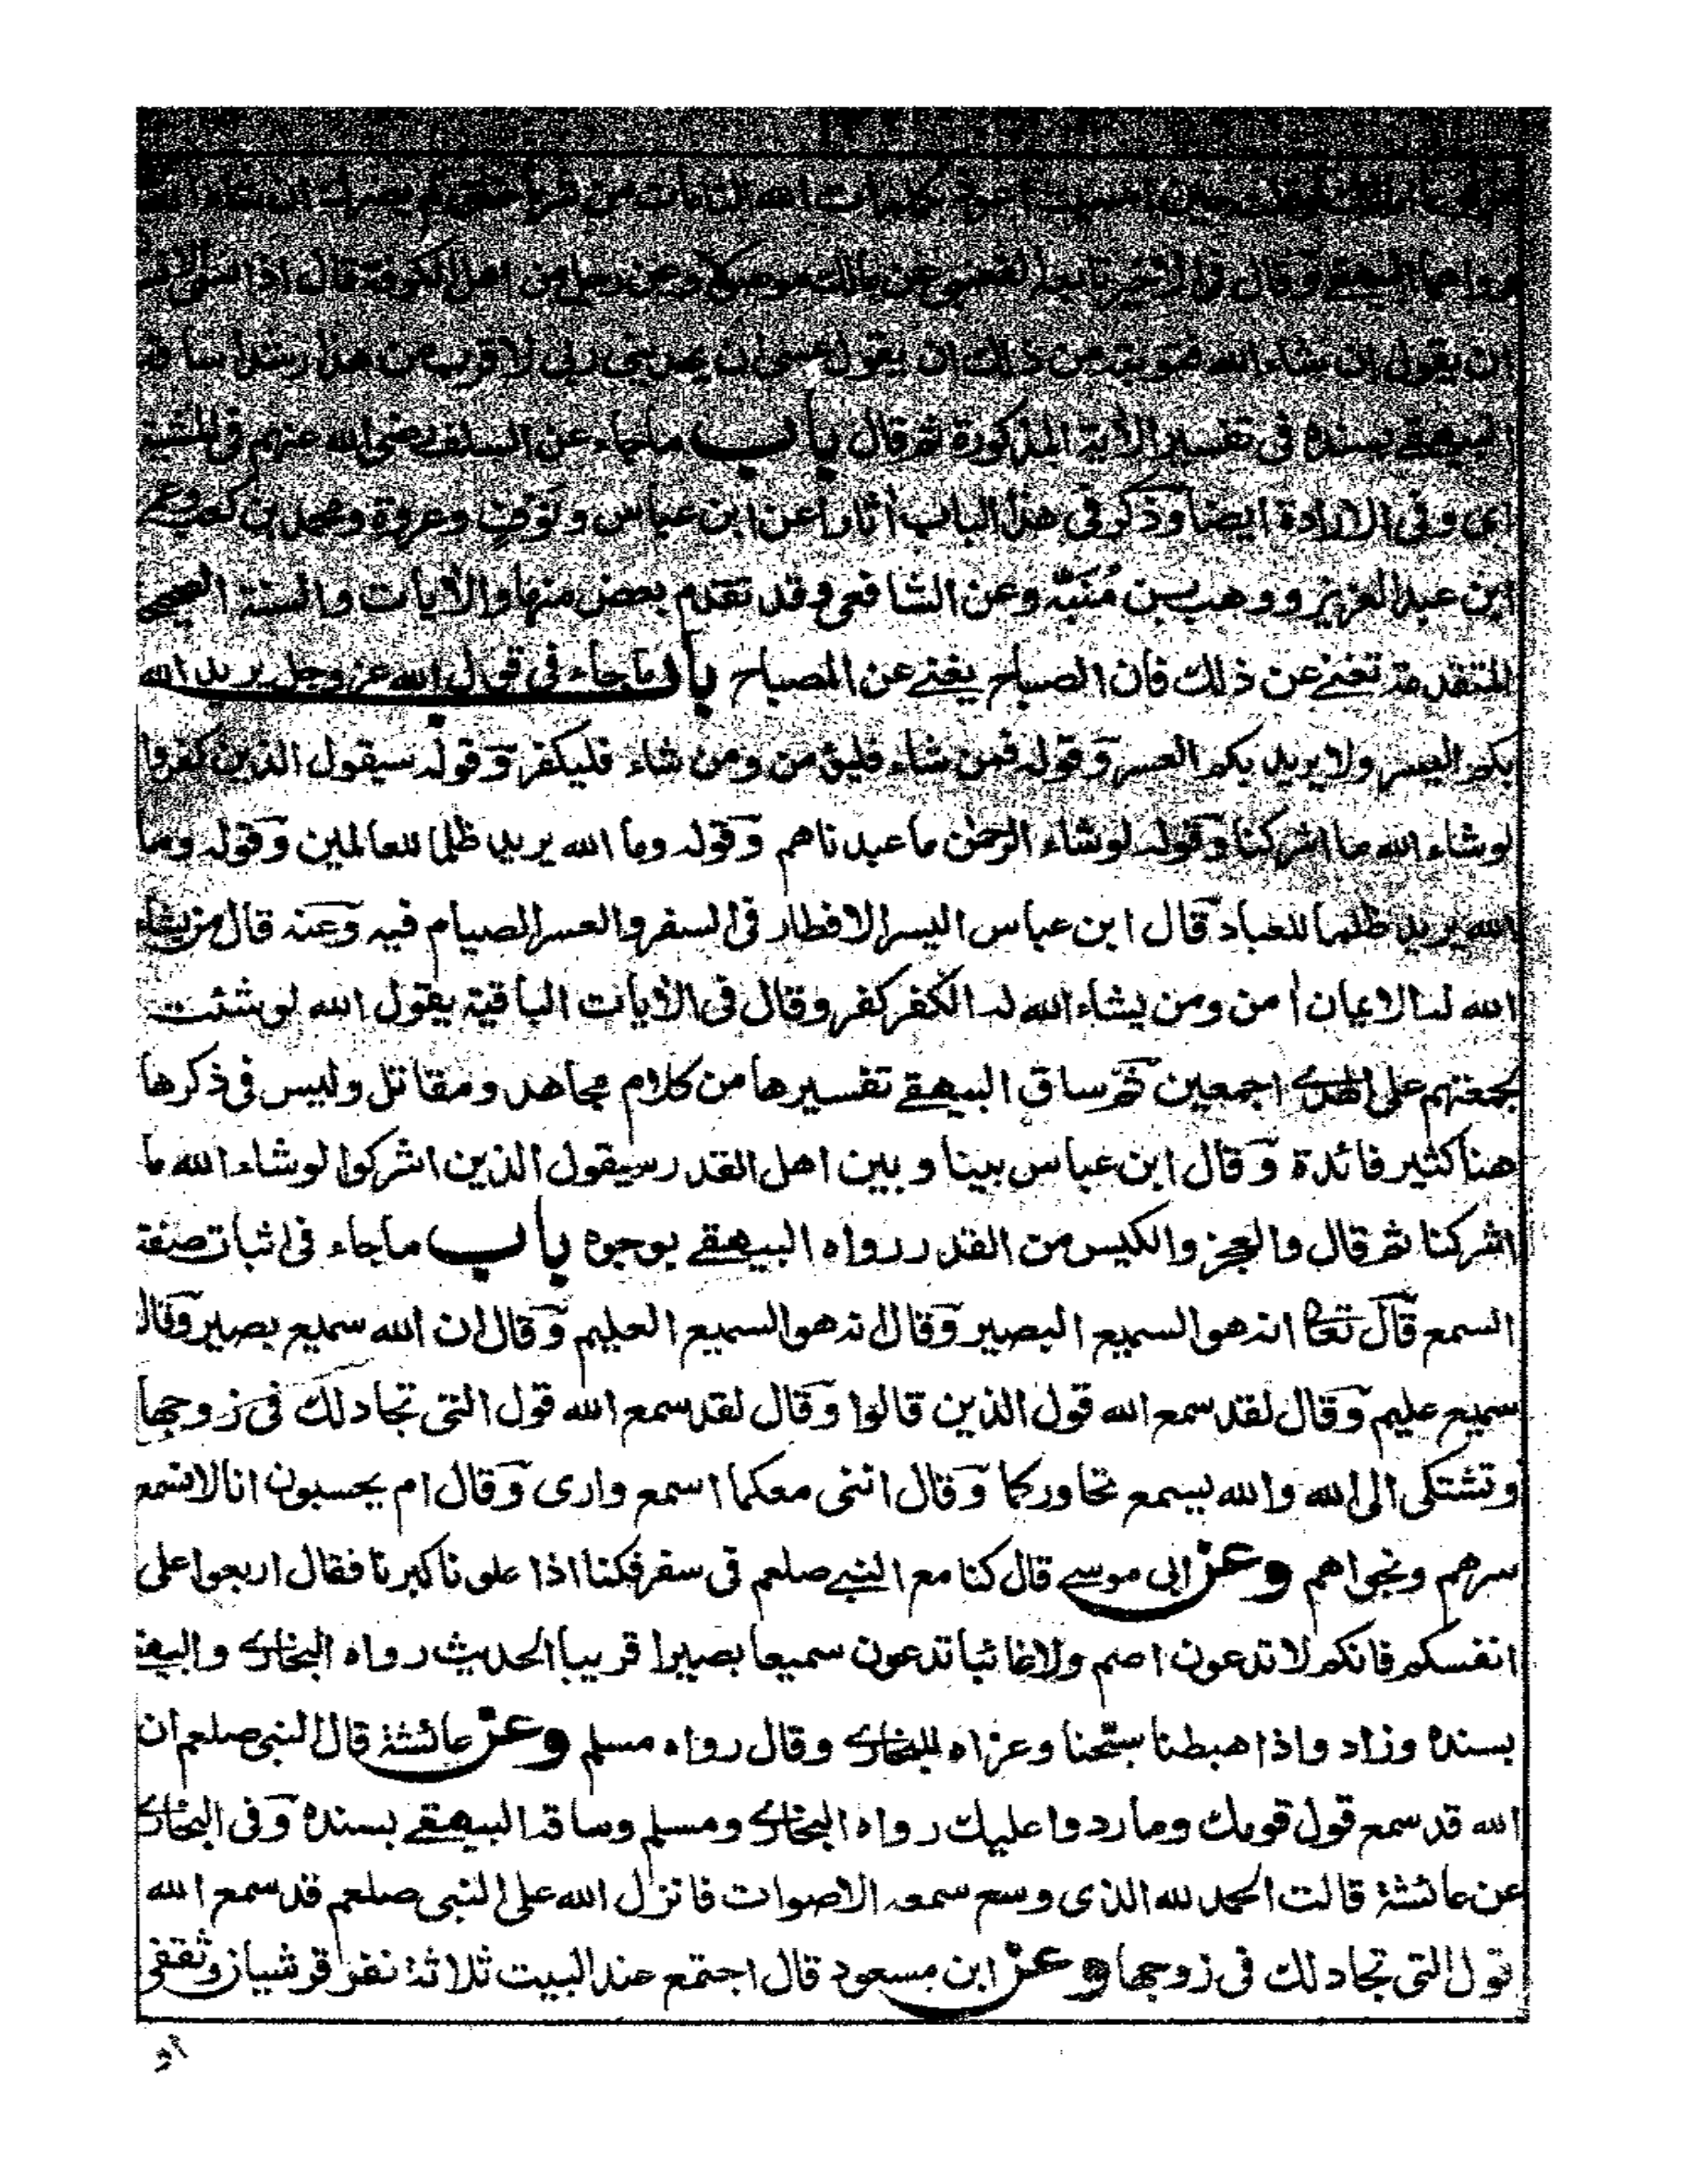 حين امسيت اعوذ بكلمات الله التامات من شر ما خلق لم يضرك ان شاء الله
رواهما البيهقے وقال والاخير تابعه القعنبي عن مالك موصولا وعن رجل من اهل الكوفة قال اذا نسى
ان يقول ان شاء الله فتوبته من ذلك ان يقول عسى ان يهديني ربي لاقرب من هذا رشدا ساقه
البيهقے بسنده فى تفسير الأية المذكورة ثم قال باب ماجاء عن السلف رضى الله عنهم فى المشية
اى وفى الارادة ايضا وذكر فى هذا الباب أثارا عن ابن عباس ونوف وعروة ومحمد بن كعب وعمر
ابن عبد العزيز ووهب بن مُنَبِّه وعن الشافعى وقد تقدم بعض منها والأيات والسنة الصحيحة
المتقدمة تغنے عن ذلك فان الصباح يغنے عن المصباح باب ماجاء فى قول الله عز وجل يريد الله
بكم اليسر ولا يريد بكم العسر وقوله فمن شاء فليؤمن ومن شاء فليكفر وقوله سيقول الذين كفروا
لو شاء الله ما اشركنا وقوله لو شاء الرحمٰن ما عبدناهم وقوله وما الله يريد ظلما للعالمين وقوله وما
الله يريد ظلما للعباد قال ابن عباس اليسر الافطار فى السفر والعسر الصيام فيه وعنه قال من يشاء
الله له الايمان أمن ومن يشاء الله له الكفر كفر وقال فى الأيات الباقية يقول الله لو شئت
لجمعتهم على الهدے اجمعين ثم ساق البيهقے تفسيرها من كلام مجاهد ومقاتل وليس فى ذكرها
هنا كثير فائدة وقال ابن عباس بينا وبين اهل القدر سيقول الذين اشركوا لو شاء الله ما
اشركنا ثم قال والعجز والكيس من القدر رواه البيهقے بوجوه باب ماجاء فى اثبات صفة
السمع قال تعالى انه هو السميع البصير وقال انه هو السميع العليم وقال ان الله سميع بصير وقال
سميع عليم وقال لقد سمع الله قول الذين قالوا وقال لقد سمع الله قول التى تجادلك فى زوجها
وتشتكى الى الله والله يسمع تحاوركما وقال اننى معكما اسمع وارى وقال ام يحسبون انا لا نسمع
سرهم ونجواهم وعن ابى موسے قال كنا مع النبے صلعم فى سفر فكنا اذا علونا كبرنا فقال اربعوا على
انفسكم فانكم لا تدعون اصم ولا غائبا تدعون سميعا بصيرا قريبا الحديث رواه البخارے والبيهقے
بسنده وزاد واذا هبطنا سبّحنا وعزاه للبخارے وقال رواه مسلم وعن عائشة قال النبى صلعم ان
الله قد سمع قول قومك وما ردوا عليك رواه البخارے ومسلم وساقه البيهقے بسنده وفى البخارے
عن عائشة قالت الحمد لله الذى وسع سمعه الاصوات فانزل الله على النبى صلعم قد سمع الله
قول التى تجادلك فى زوجها وعن ابن مسعود قال اجتمع عند البيت ثلاثة نفر قرشيان وثقفى
او